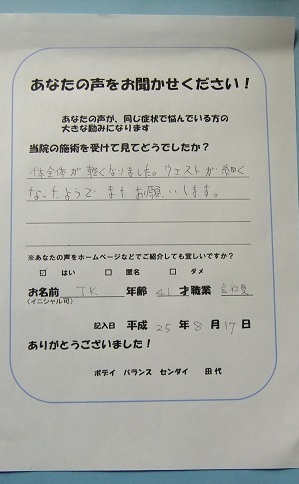 あなたの声をお聞かせください！
あなたの声が、同じ症状で悩んでいる方の
大きな励みになります
当院の施術を受けて見てどうでしたか？
体全体が軽くなりました。ウエストが細く
なったようで またお願いします。
※あなたの声をホームページなどでご紹介しても宜しいですか？
☑ はい □ 匿名 □ ダメ
お名前 TK 年齢 41 才職業 会社員
(イニシャル可)
記入日 平成 25 年 8 月 17 日
ありがとうございました！
ボデイ バランス センダイ 田代